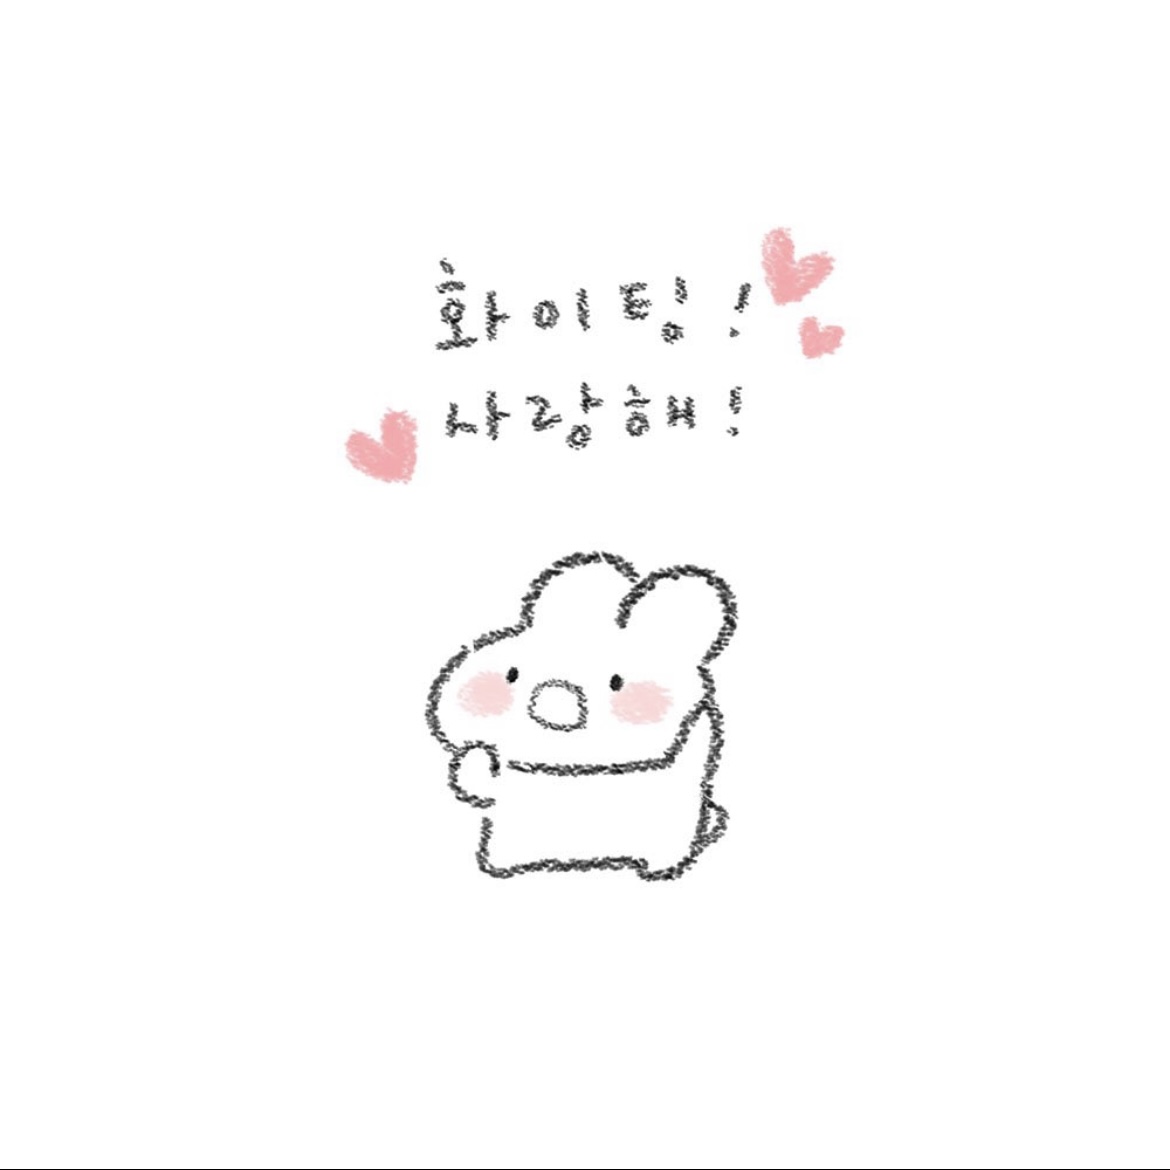 화이팅!
사랑해!